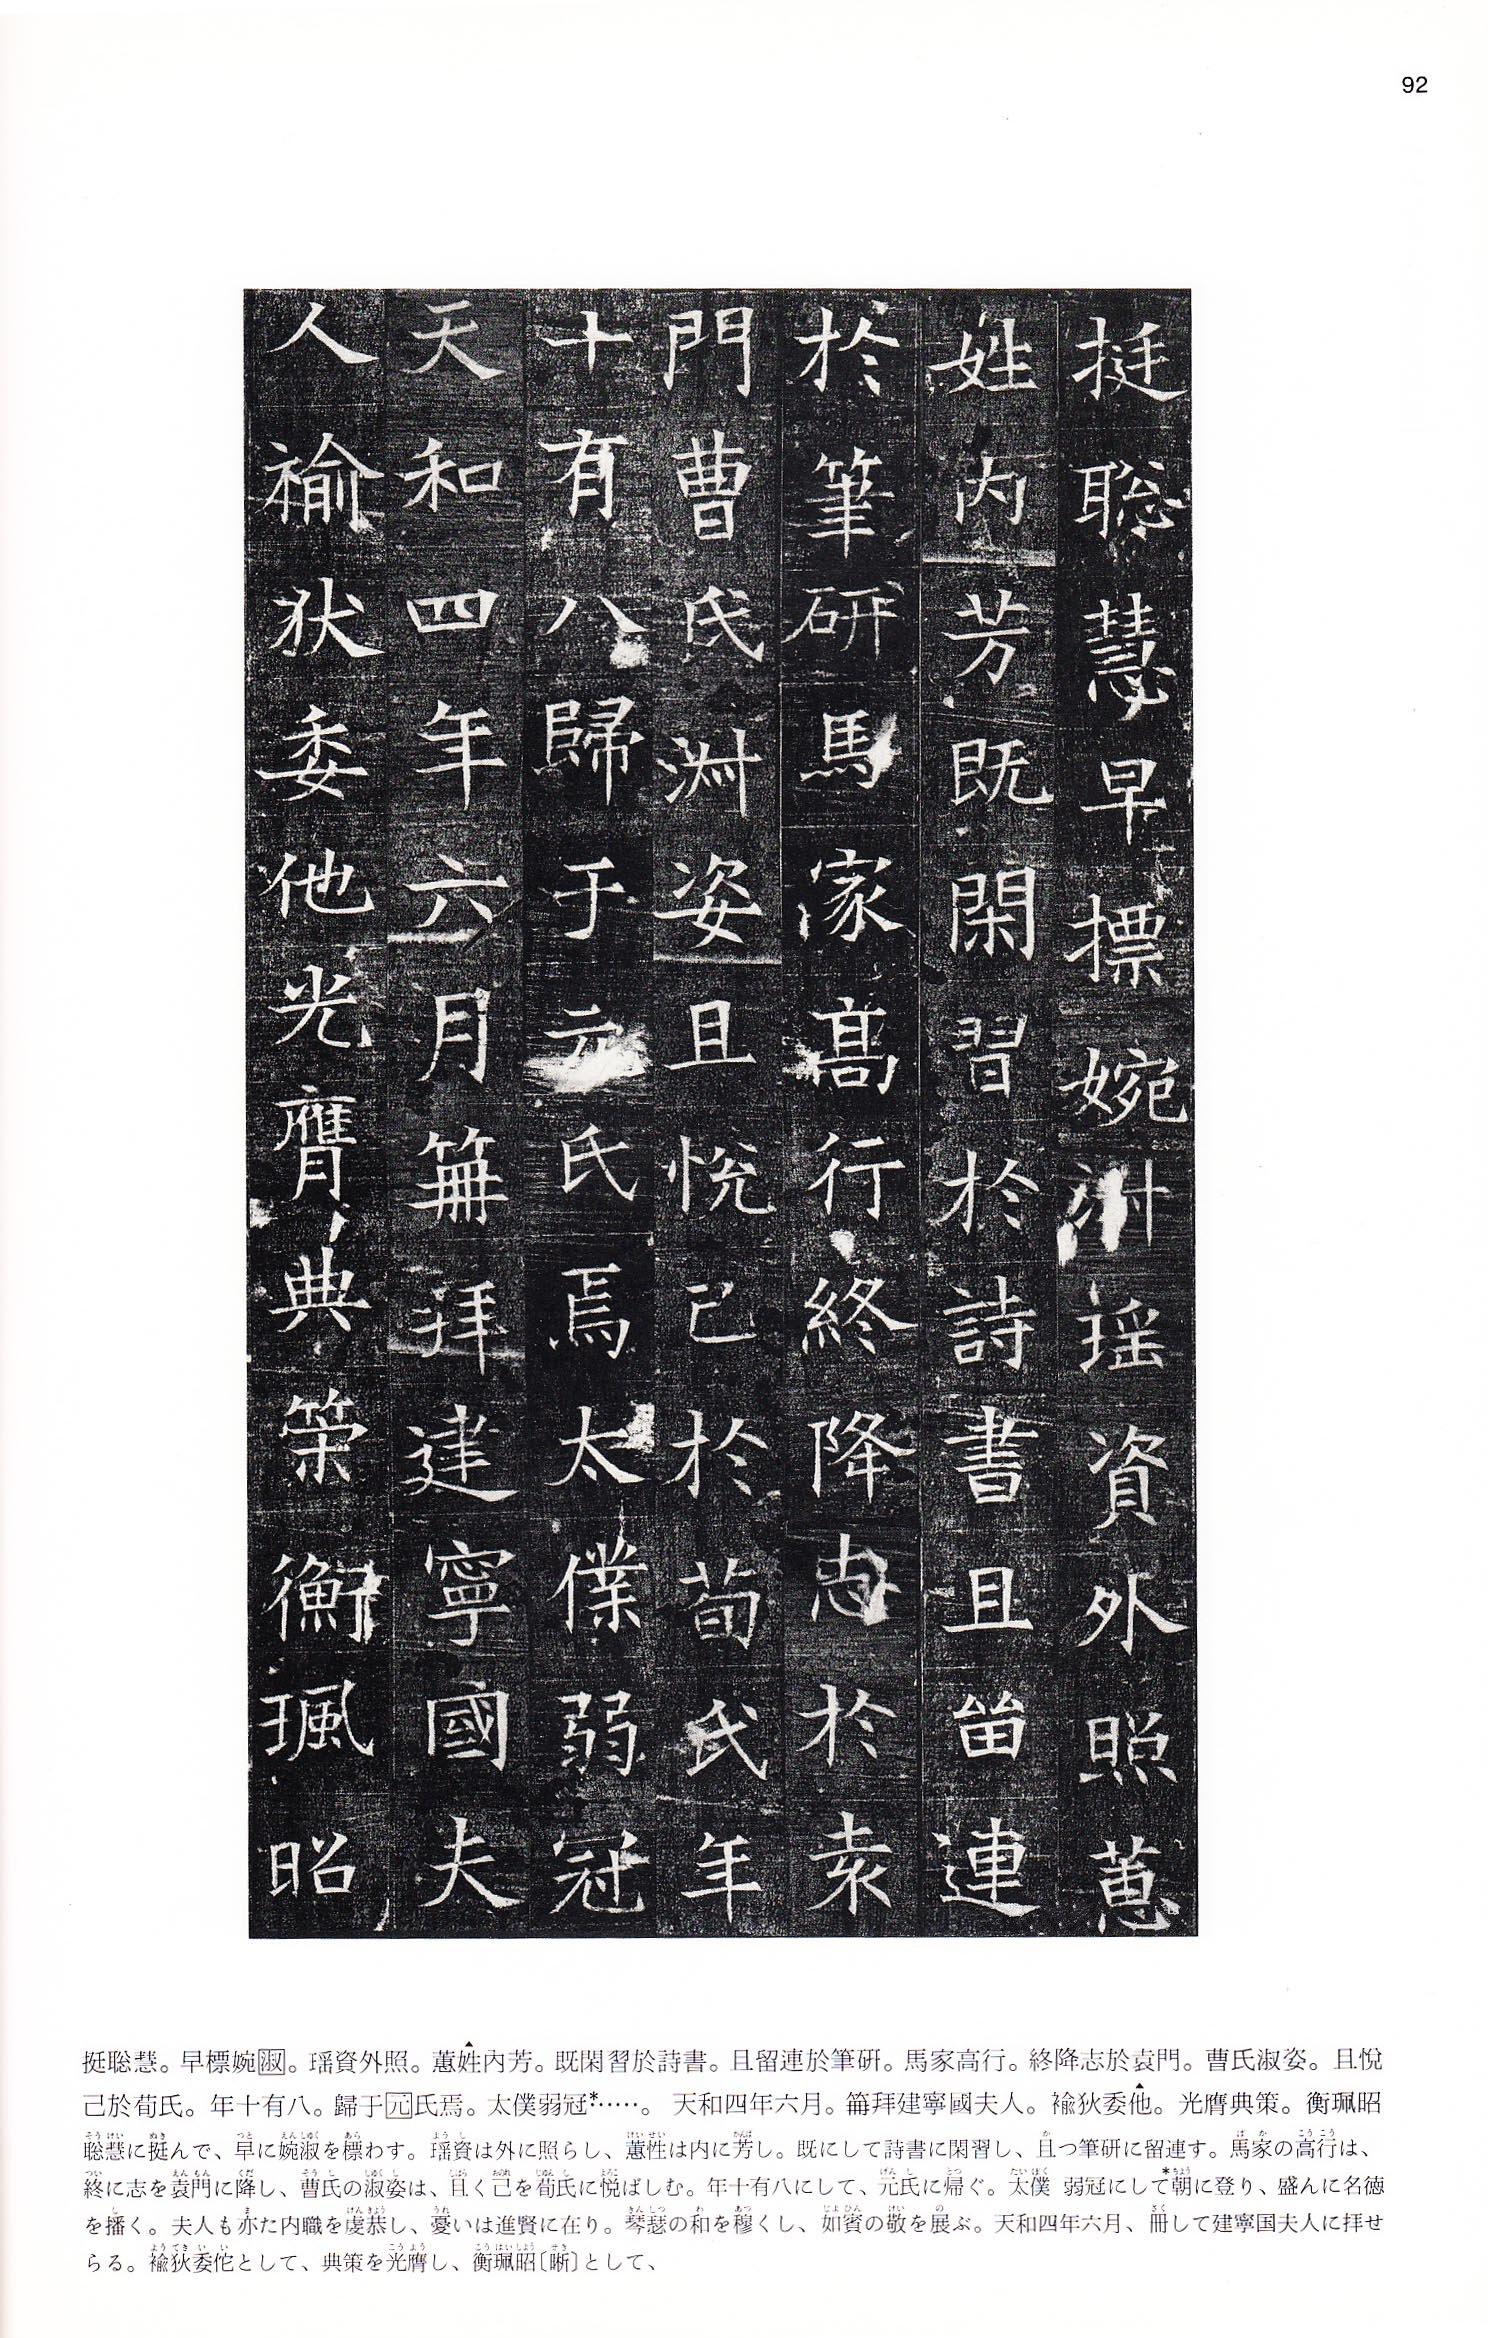 92
挺聡慧早標婉淋瑶資外照蕙
姓内芳既閑習於詩書且畱連
於筆研馬家髙行終降志於袁
門曹氏淋姿且悅己於荀氏年
十有八歸于元氏焉太僕弱冠
天和四年六月篰拜建寧國夫
人褕狄委他光膺典策衡珮昭
挺聡慧。早標婉淑。瑶資外照。蕙姓内芳。既閑習於詩書。且留連於筆研。馬家高行。終降志於袁門。曹氏淑姿。且悅
己於荀氏。年十有八。歸于元氏焉。太僕弱冠*……。天和四年六月。篰拜建寧國夫人。褕狄委他。光膺典策。衡珮昭
聡慧に挺んで、早に婉淑を標わす。瑶資は外に照らし、蕙性は内に芳し。既にして詩書に閑習し、且つ筆研に留連す。馬家の高行は、
終に志を袁門に降し、曹氏の淑姿は、且く己を荀氏に悦ばしむ。年十有八にして、元氏に帰ぐ。太僕 弱冠にして*朝に登り、盛んに名徳
を播く。夫人も亦た内職を虔恭し、憂いは進賢に在り。琴瑟の和を穆くし、如賓の敬を展ぶ。天和四年六月、冊して建寧国夫人に拝せ
らる。褕狄委佗として、典策を光膺し、衡珮昭〔晰〕として、